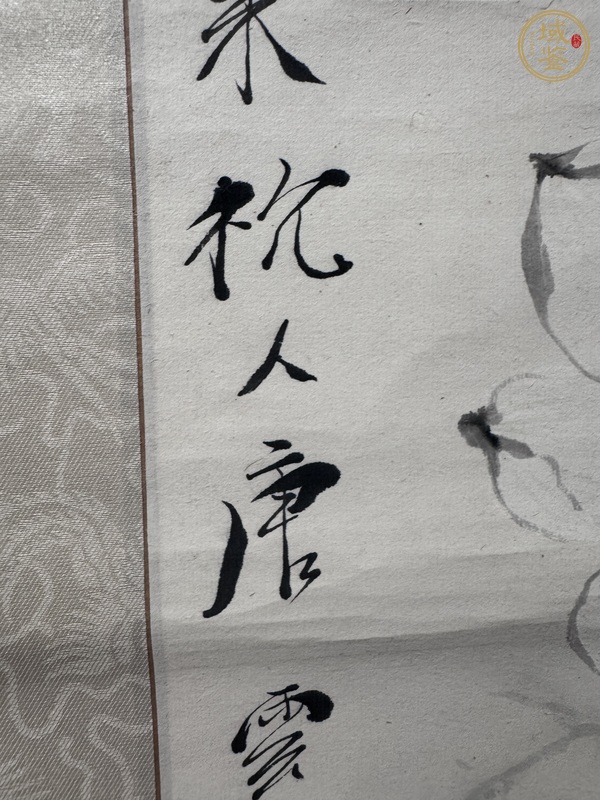 杭人唐雲
域鉴